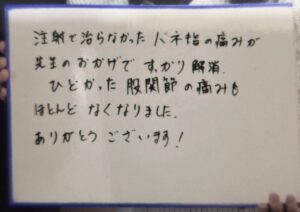 注射で治らなかったバネ指の痛みが
先生のおかげですっかり解消.
ひどかった股関節の痛みも
ほとんどなくなりました.
ありがとうございます!